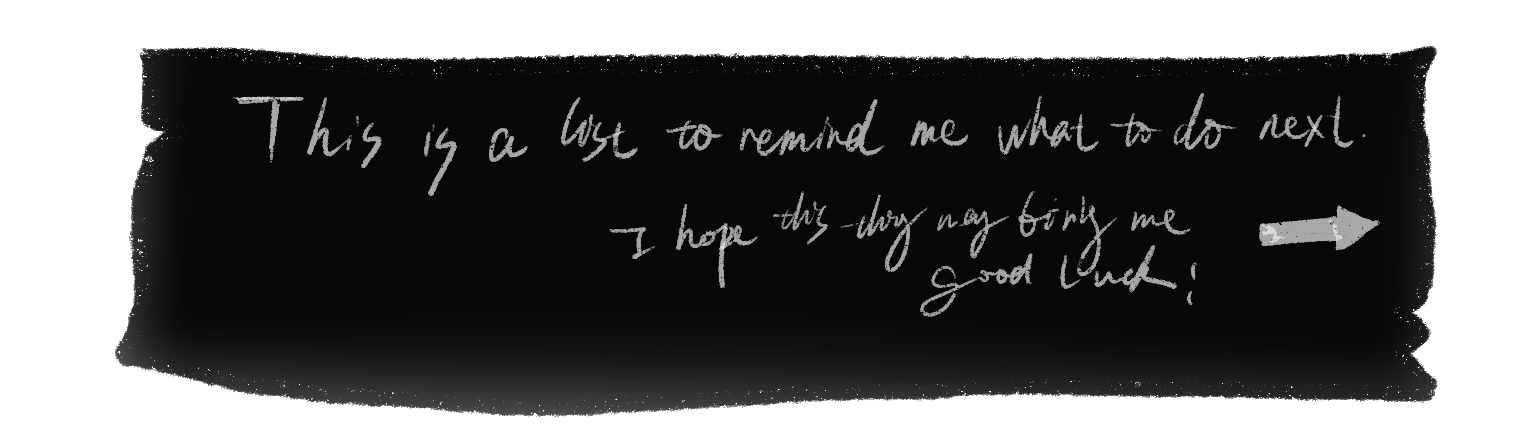 This is a list to remind me what to do next.
I hope this thing may bring me
good luck!